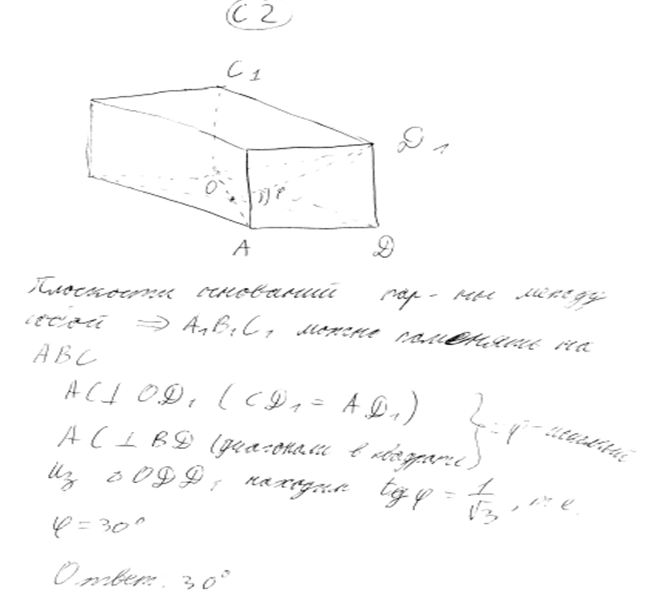 C 2
C₁
D₁
O φ
A D
Плоскости оснований пар-ны между
собой ⇒ A₁B₁C₁ можно поменять на
ABC
AC ⊥ OD₁ (CD₁ = AD₁)
AC ⊥ BD (диагонали в квадрате) } ⇒ φ - искомый
Из △ODD₁ находим tg φ = 1/√3, т.е.
φ = 30°
Ответ. 30°